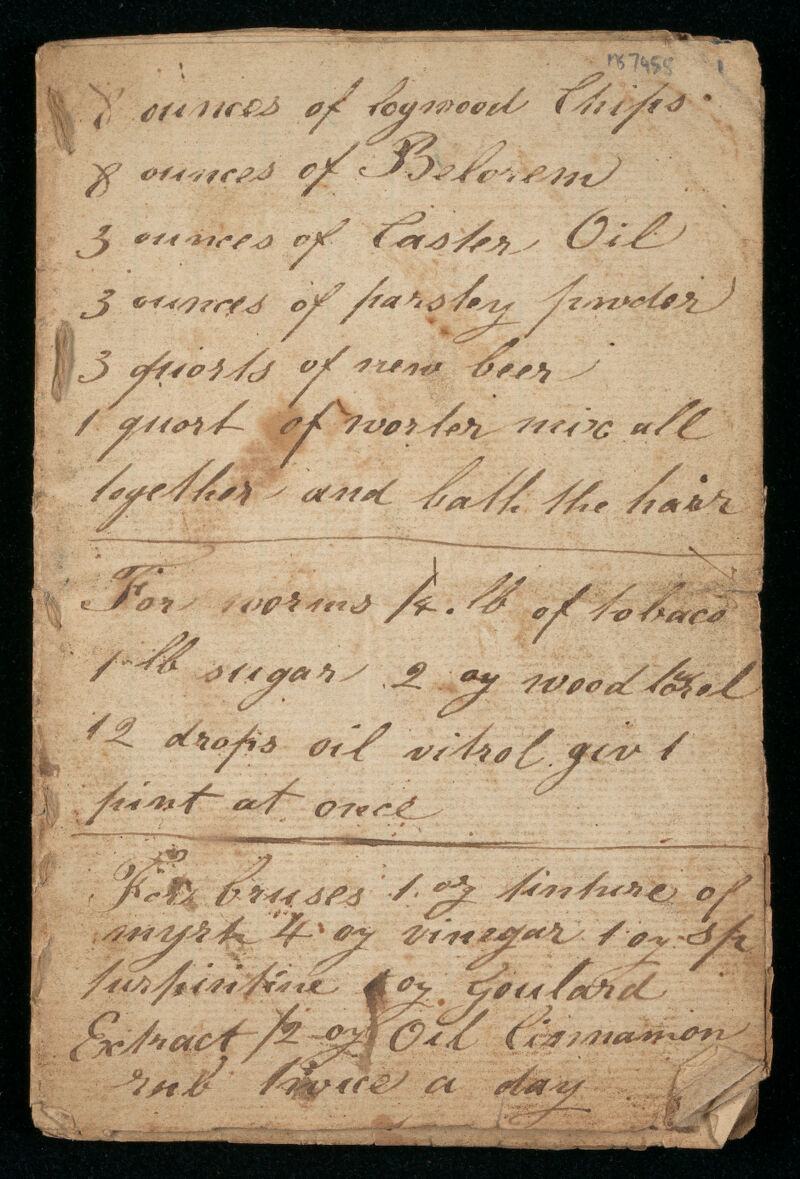 MS 7958 1
8 ounces of logwood Chips
8 ounces of Belorem
3 ounces of Caster Oil
3 ounces of parsley pwder
3 quorts of new beer
1 quort of worter mix all
together and bath the hair
For worms 1/4 . lb of tobaco
1 lb sugar 2 oz wood
12 drops oil vitrol giv 1
pint at once
For bruses 1 oz tinture of
myrh 4 oz vinegar 1 oz sp
turpintine 1 oz Goulard
Extract 1/2 oz Oil Cinnamon
rub twice a day